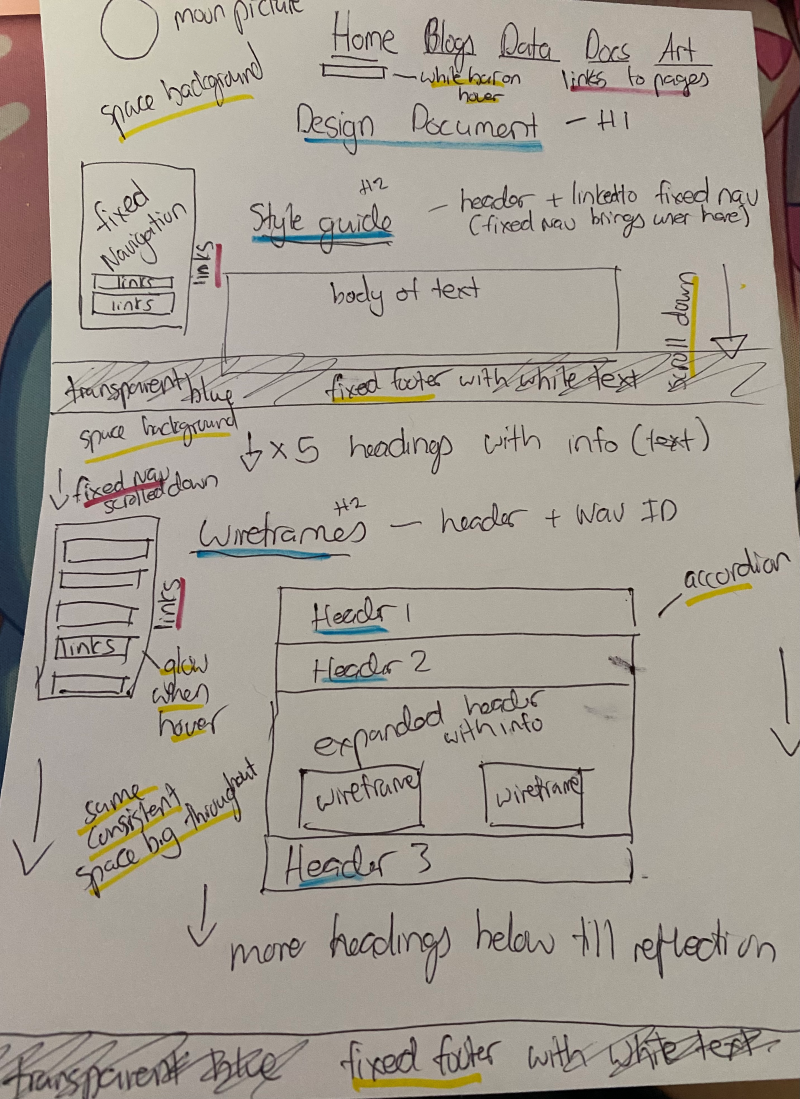 moon picture
Home Blogs Data Docs Art
white bar on hover
links to pages
space background
Design Document - H1
fixed Navigation
links
links
links
H2
Style guide - header + linked to fixed nav
(fixed nav brings user here)
body of text
scroll down
transparent blue fixed footer with white text
space background
↓ x 5 headings with info (text)
↓ fixed nav scrolled down
H2
Wireframes - header + nav ID
links
links
glow when hover
accordian
Header 1
Header 2
expanded header with info
wireframe wireframe
Header 3
same consistent space b.g throughout
more headings below till reflection
transparent blue fixed footer with white text.